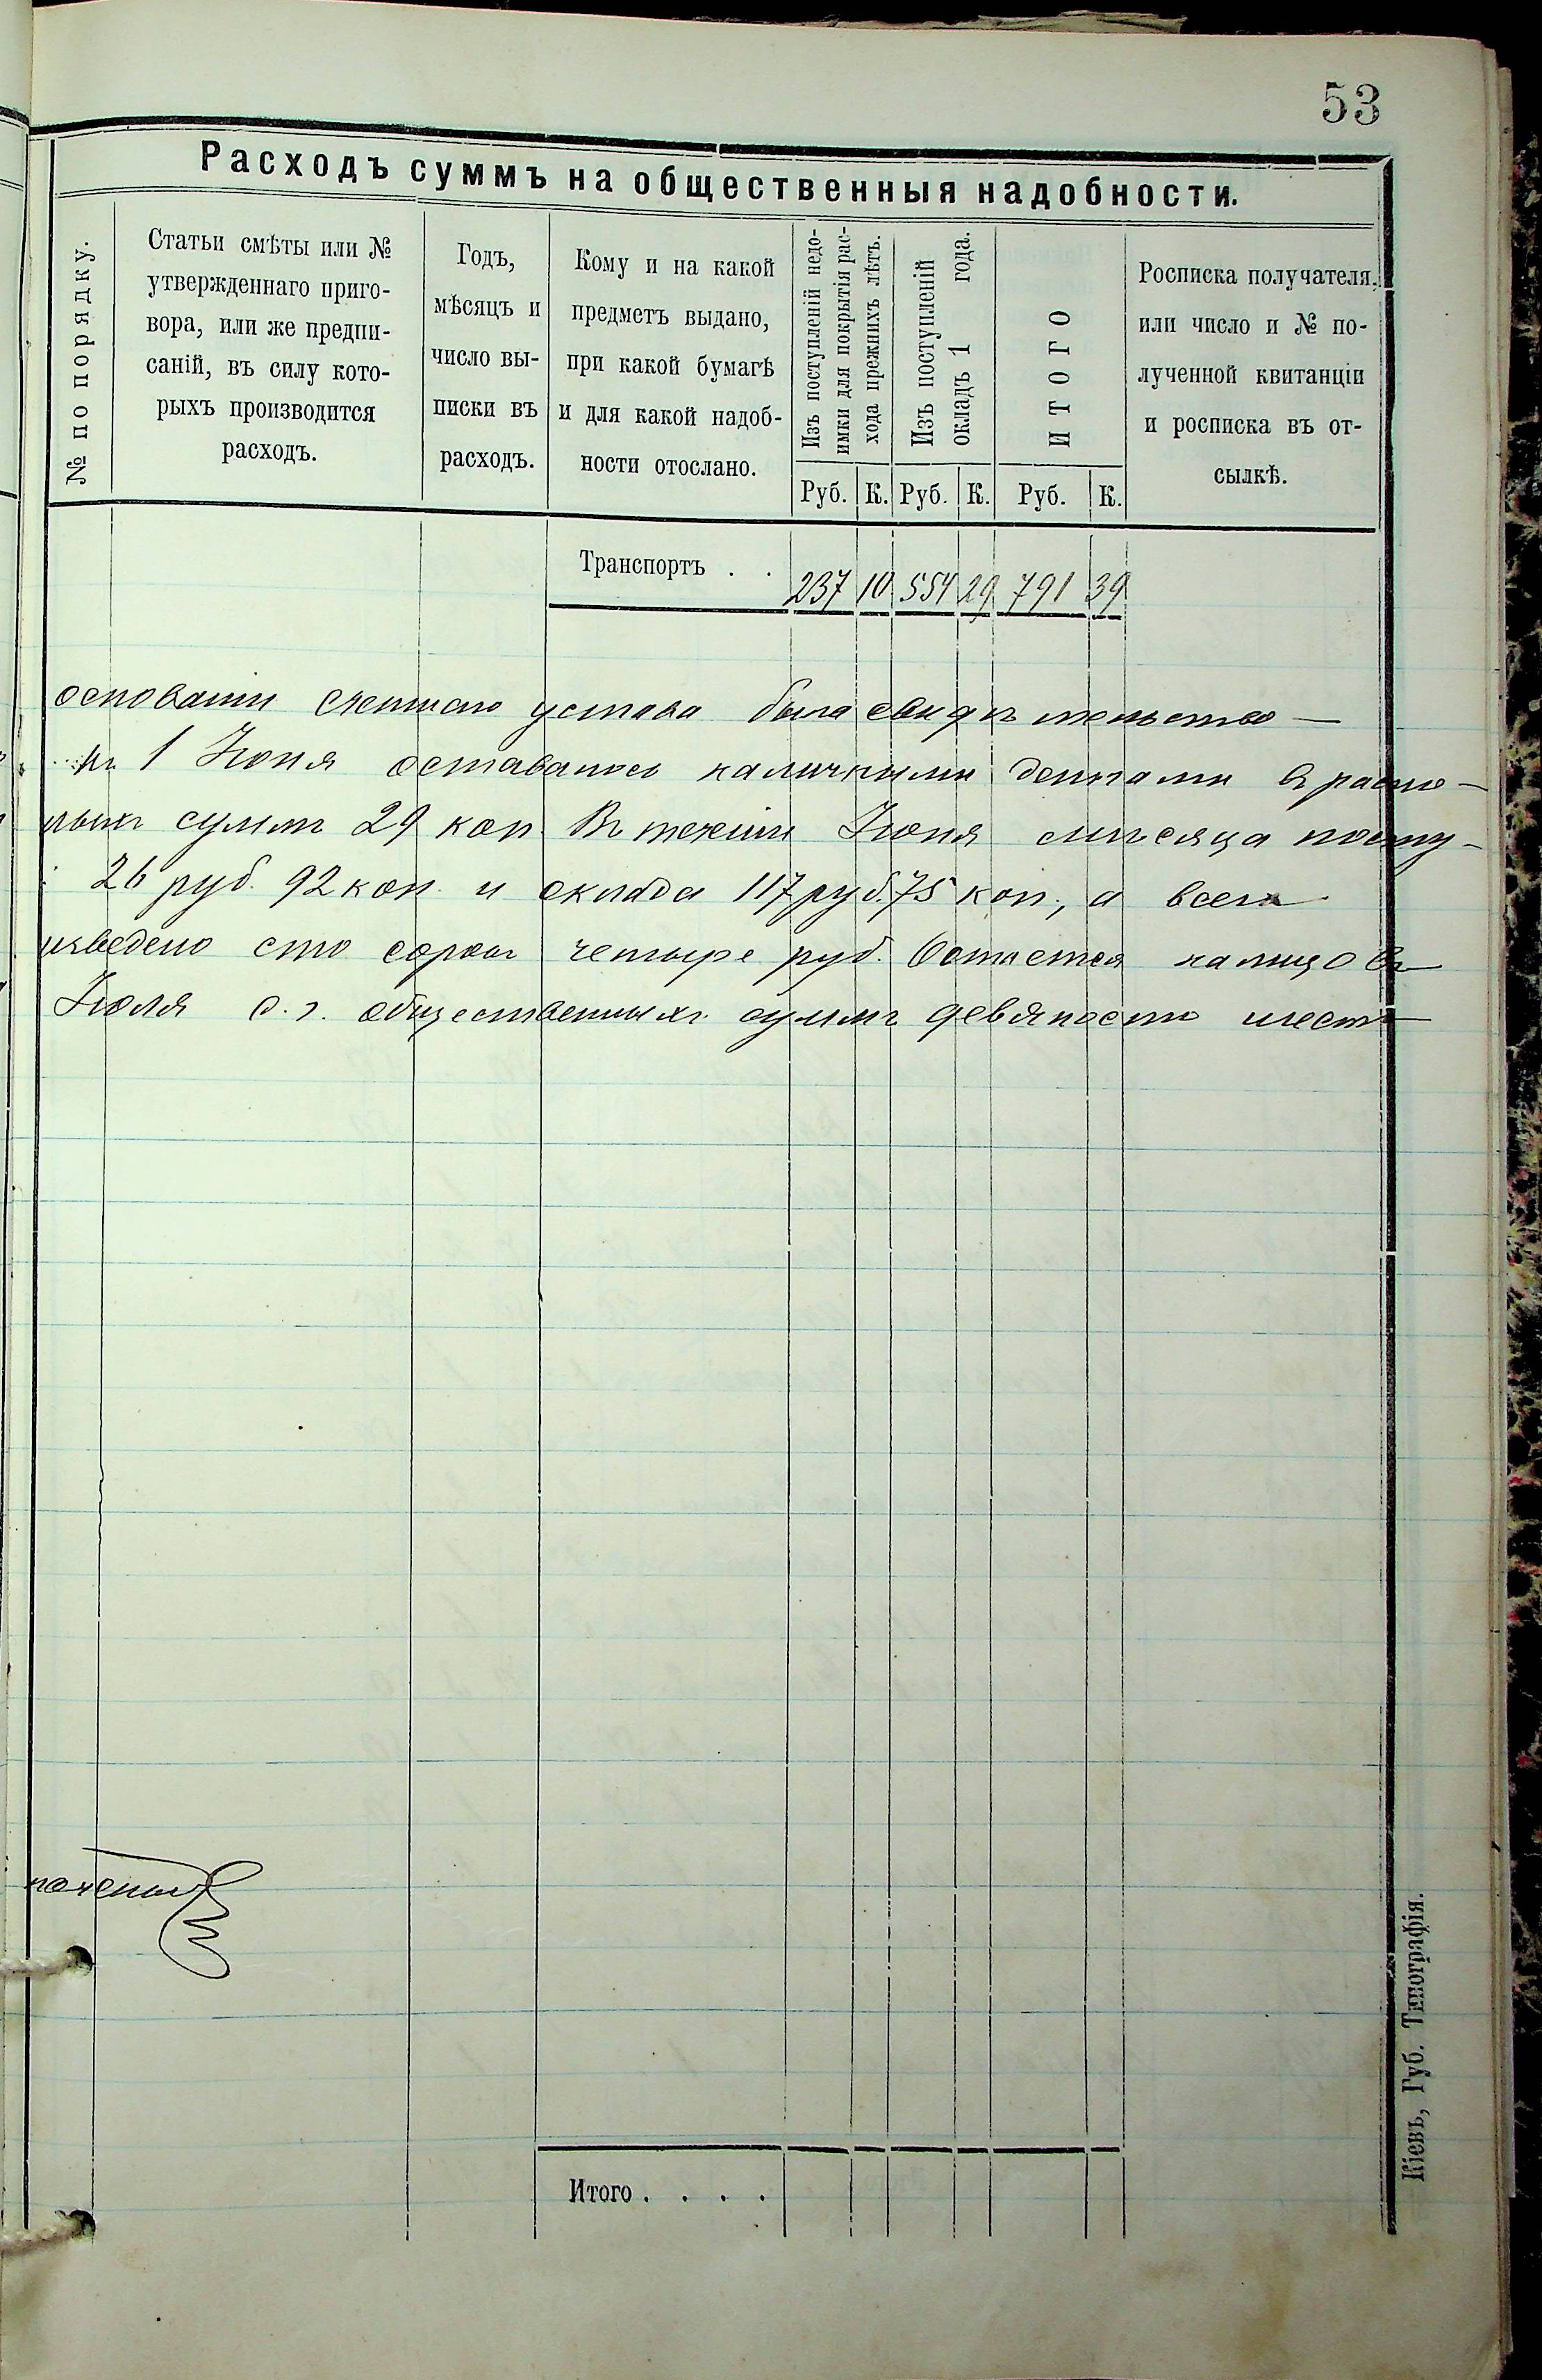 53
Расходъ суммъ на общественныя надобности.
№ по порядку.
Статьи смѣты или №
утвержденнаго приго-
вора, или же предпи-
саній, въ силу кото-
рыхъ производится
расходъ.
Годъ,
мѣсяцъ и
число вы-
писки въ
расходъ.
Кому и на какой
предметъ выдано,
при какой бумагѣ
и для какой надоб-
ности отослано.
Изъ поступленій недо-
имки для покрытія рас-
хода прежнихъ лѣтъ.
Изъ поступленій
окладъ 1 года.
ИТОГО
Росписка получателя,
или число и № по-
лученной квитанціи
и росписка въ от-
сылкѣ.
Руб. К. Руб. К. Руб. К.
Транспортъ . . 237 10 554 29 791 39
основаніи счетнаго устава была свидѣтельство
1 Іюня оставалось наличными деньгами
суммъ 29 коп. Въ теченіи Іюня мѣсяца посту-
26 руб. 92 коп. и оклада 117 руб. 75 коп., а всего
изведено сто сорокъ четыре руб. Остается
Іюля с. г. общественныхъ суммъ девяносто шесть
Итого . . . .
Кіевъ, Губ. Типографія.